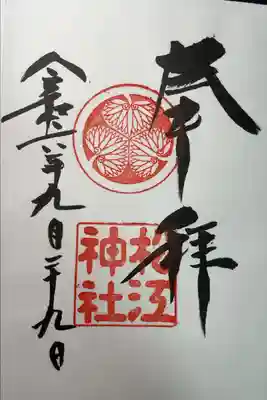 奉拝
松江
神社
令和六年九月二十九日